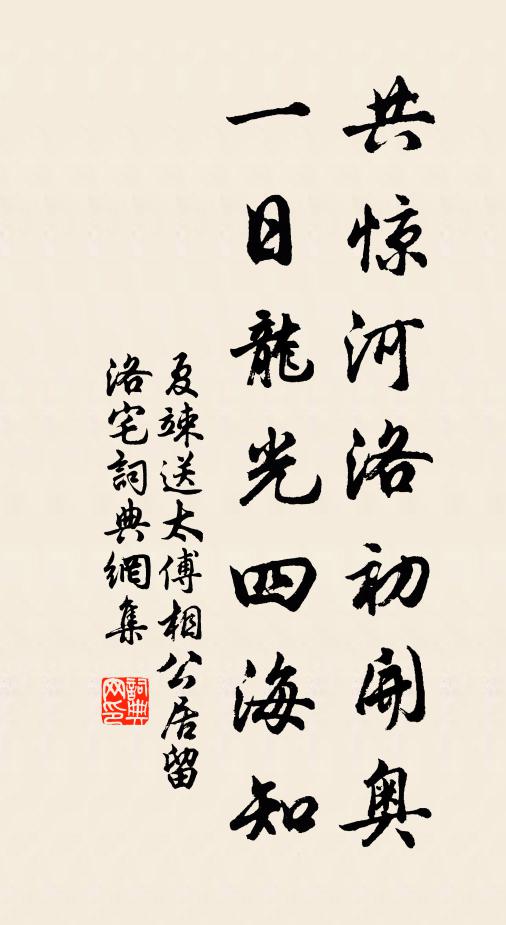 共惊河洛初開奥
一日龍光四海知
夏竦送太傅相公居留
洛宅詞典網集
詞典网印